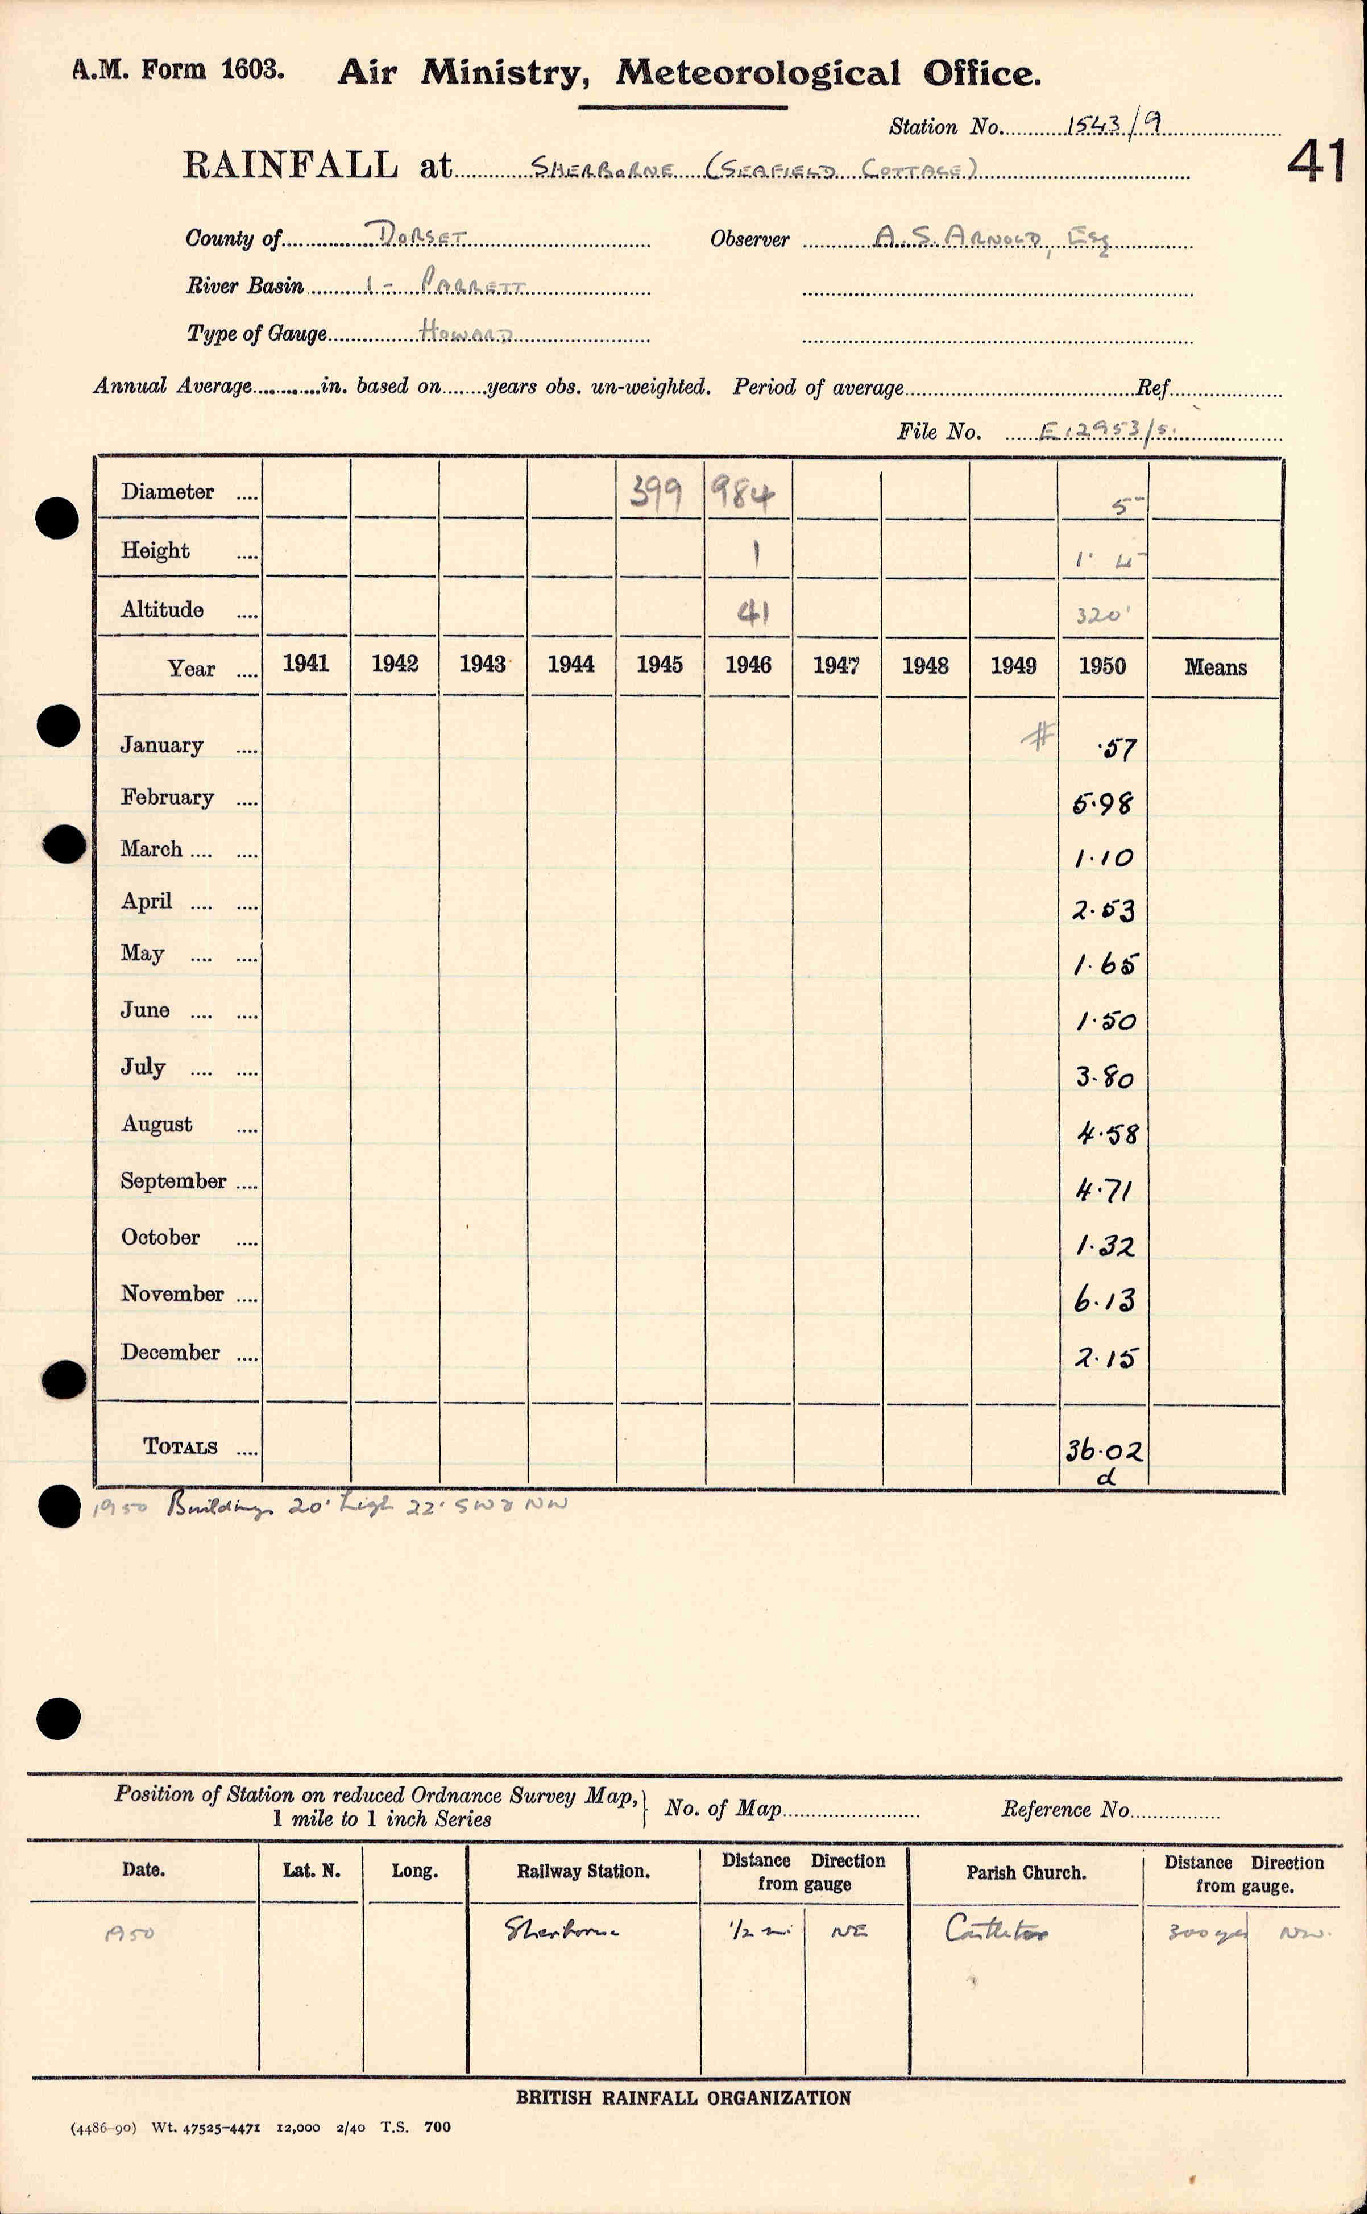 A.M. Form 1603. Air Ministry, Meteorological Office.
Station No. 1543/9
41
RAINFALL at SHERBORNE (SEAFIELD COTTAGE)
County of DORSET Observer A. S. ARNOLD, Esq
River Basin 1 - PARRETT
Type of Gauge HOWARD
Annual Average in. based on years obs. un-weighted. Period of average Ref.
File No. E.12953/5.
Diameter .... 399 984 5"
Height .... 1 1' 4"
Altitude .... 41 320'
Year .... 1941 1942 1943 1944 1945 1946 1947 1948 1949 1950 Means
January .... # ·57
February .... 5·98
March .... .... 1·10
April .... .... 2·53
May .... .... 1·65
June .... .... 1·50
July .... .... 3·80
August .... 4·58
September .... 4·71
October .... 1·32
November .... 6·13
December .... 2·15
TOTALS .... 36·02
d
1950 Buildings 20' high 22' SW & NW
Position of Station on reduced Ordnance Survey Map, } No. of Map Reference No.
1 mile to 1 inch Series
Date. Lat. N. Long. Railway Station. Distance Direction from gauge Parish Church. Distance Direction from gauge.
1950 Sherborne 1/2 mi NE Castleton 300 yds NW.
BRITISH RAINFALL ORGANIZATION
(4486-90) Wt. 47525-4471 12,000 2/40 T.S. 700